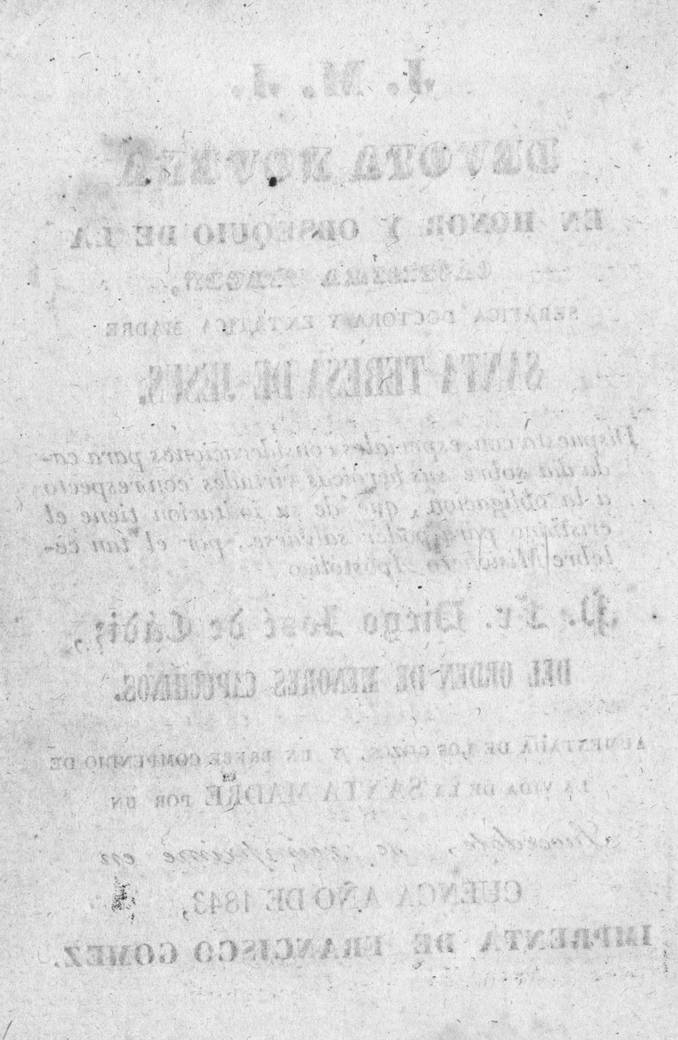 J. M. J.
DEVOTA NOVENA
EN HONOR Y OBSEQUIO DE LA
SERÁFICA DOCTORA Y EXTÁTICA MADRE
SANTA TERESA DE JESUS.
Dispuesta con especiales consideraciones para ca-
da dia sobre sus heróicas virtudes con respecto
á la obligacion, que de su imitacion tiene el
cristiano para poder salvarse, por el tan cé-
lebre Misionero Apostólico
P. Fr. Diego José de Cádiz,
DEL ORDEN DE MENORES CAPUCHINOS.
AUMENTADA DE LOS GOZOS, Y UN BREVE COMPENDIO DE
LA VIDA DE LA SANTA MADRE POR UN
Sacerdote, se reimprime en
CUENCA AÑO DE 1843,
IMPRENTA DE FRANCISCO GOMEZ.